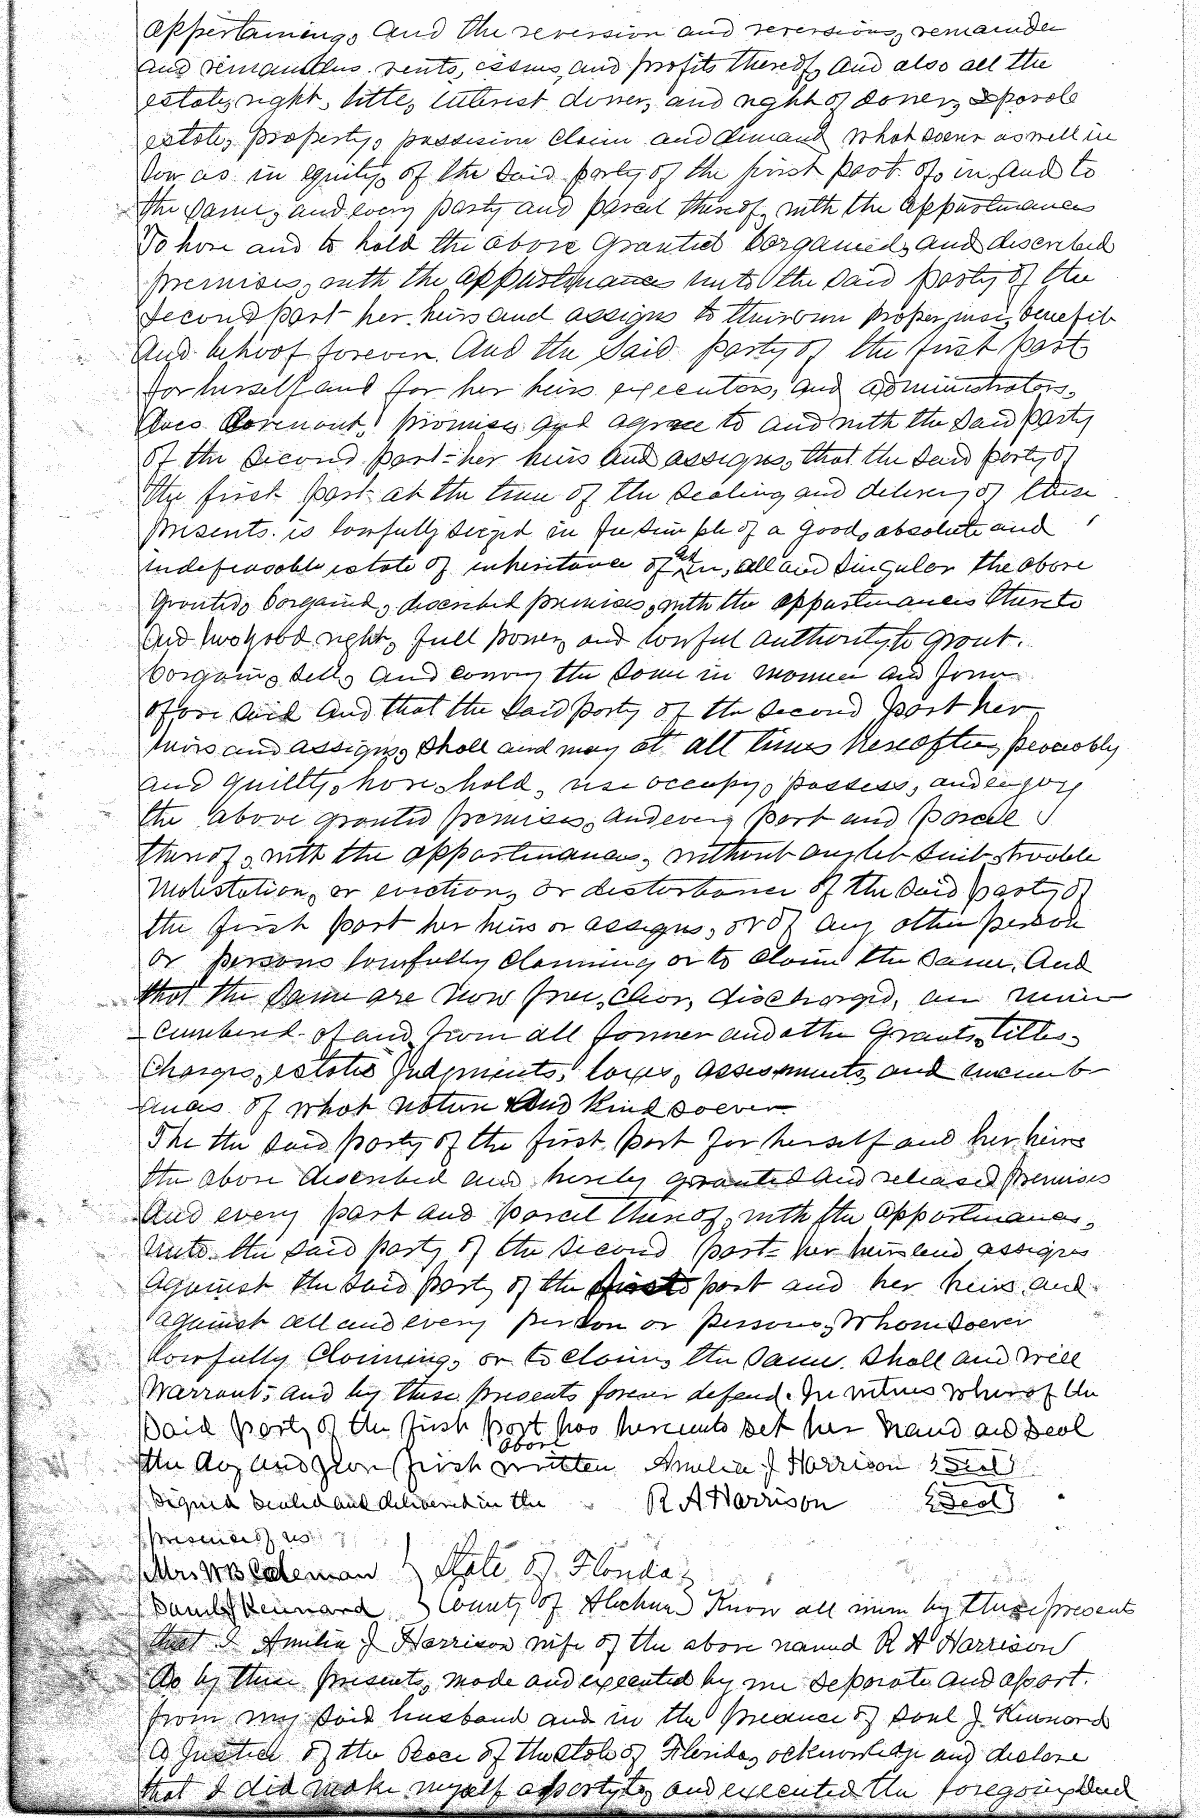 appertaining, and the reversion and reversions, remainder
and remainders rents, issues, and profits thereof, and also all the
estate, right, title, interest dower, and right of dower, separate
estate, property, possession claim and demand whatsoever as well in
law as in equity, of the said party of the first part of, in, and to
the same, and every party and parcel thereof, with the appurtenances
To have and to hold the above granted bargained, and described
premises, with the appurtenances unto the said party of the
second part her heirs and assigns to their own proper use, benefit
and behoof forever. And the said party of the first part
for herself and for her heirs executors, and administrators,
does covenant, promises and agree to and with the said party
of the second part - her heirs and assigns, that the said party of
the first part at the time of the sealing and delivery of these
presents is lawfully seized in fee simple of a good, absolute and
indefeasable estate of inheritance of and in, all and singular the above
granted, bargained, described premises, with the appurtenances thereto
and has good right, full power, and lawful authority to grant.
bargain, sell, and convey the same in manner and form
afore said and that the said party of the second part her
heirs and assigns, shall and may at all times hereafter, peaceably
and quietly, have, hold, use occupy, possess, and enjoy
the above granted premises, and every part and parcel
thereof, with the appurtenances, without any let suit, trouble
molestation, or eviction, or disturbance of the said party of
the first part her heirs or assigns, or of any other person
or persons lawfully claiming or to claim the same. And
that the same are now free, clear, discharged, an unin-
cumbered of and from all former and other grants, titles,
charges, estates judgments, taxes, assessments, and incumb-
ances of what nature and kind soever
The the said party of the first part for herself and her heirs
the above described and hereby granted and released premises
and every part and parcel thereof, with the appurtenances,
unto the said party of the second part - her heirs and assigns
against the said party of the first part and her heirs, and
against all and every person or persons, whomsoever
lawfully claiming, or to claim, the same. Shall and will
warrant, and by these presents forever defend. In witness whereof the
said party of the first part has hereunto set her hand and seal
the day and year first above written Amelia J Harrison {Seal}
Signed sealed and delivered in the R A Harrison {Seal}
presence of us
Mrs W B Coleman } State of Florida }
Saml J Kennard } County of Alachua } Know all men by these presents
that I Amelia J Harrison wife of the above named R A Harrison
do by these presents, made and executed by me separate and apart.
from my said husband and in the presence of Saml J. Kennard
a Justice of the Peace of the state of Florida, acknowledge and declare
that I did make myself a party to, and executed the foregoing Deed